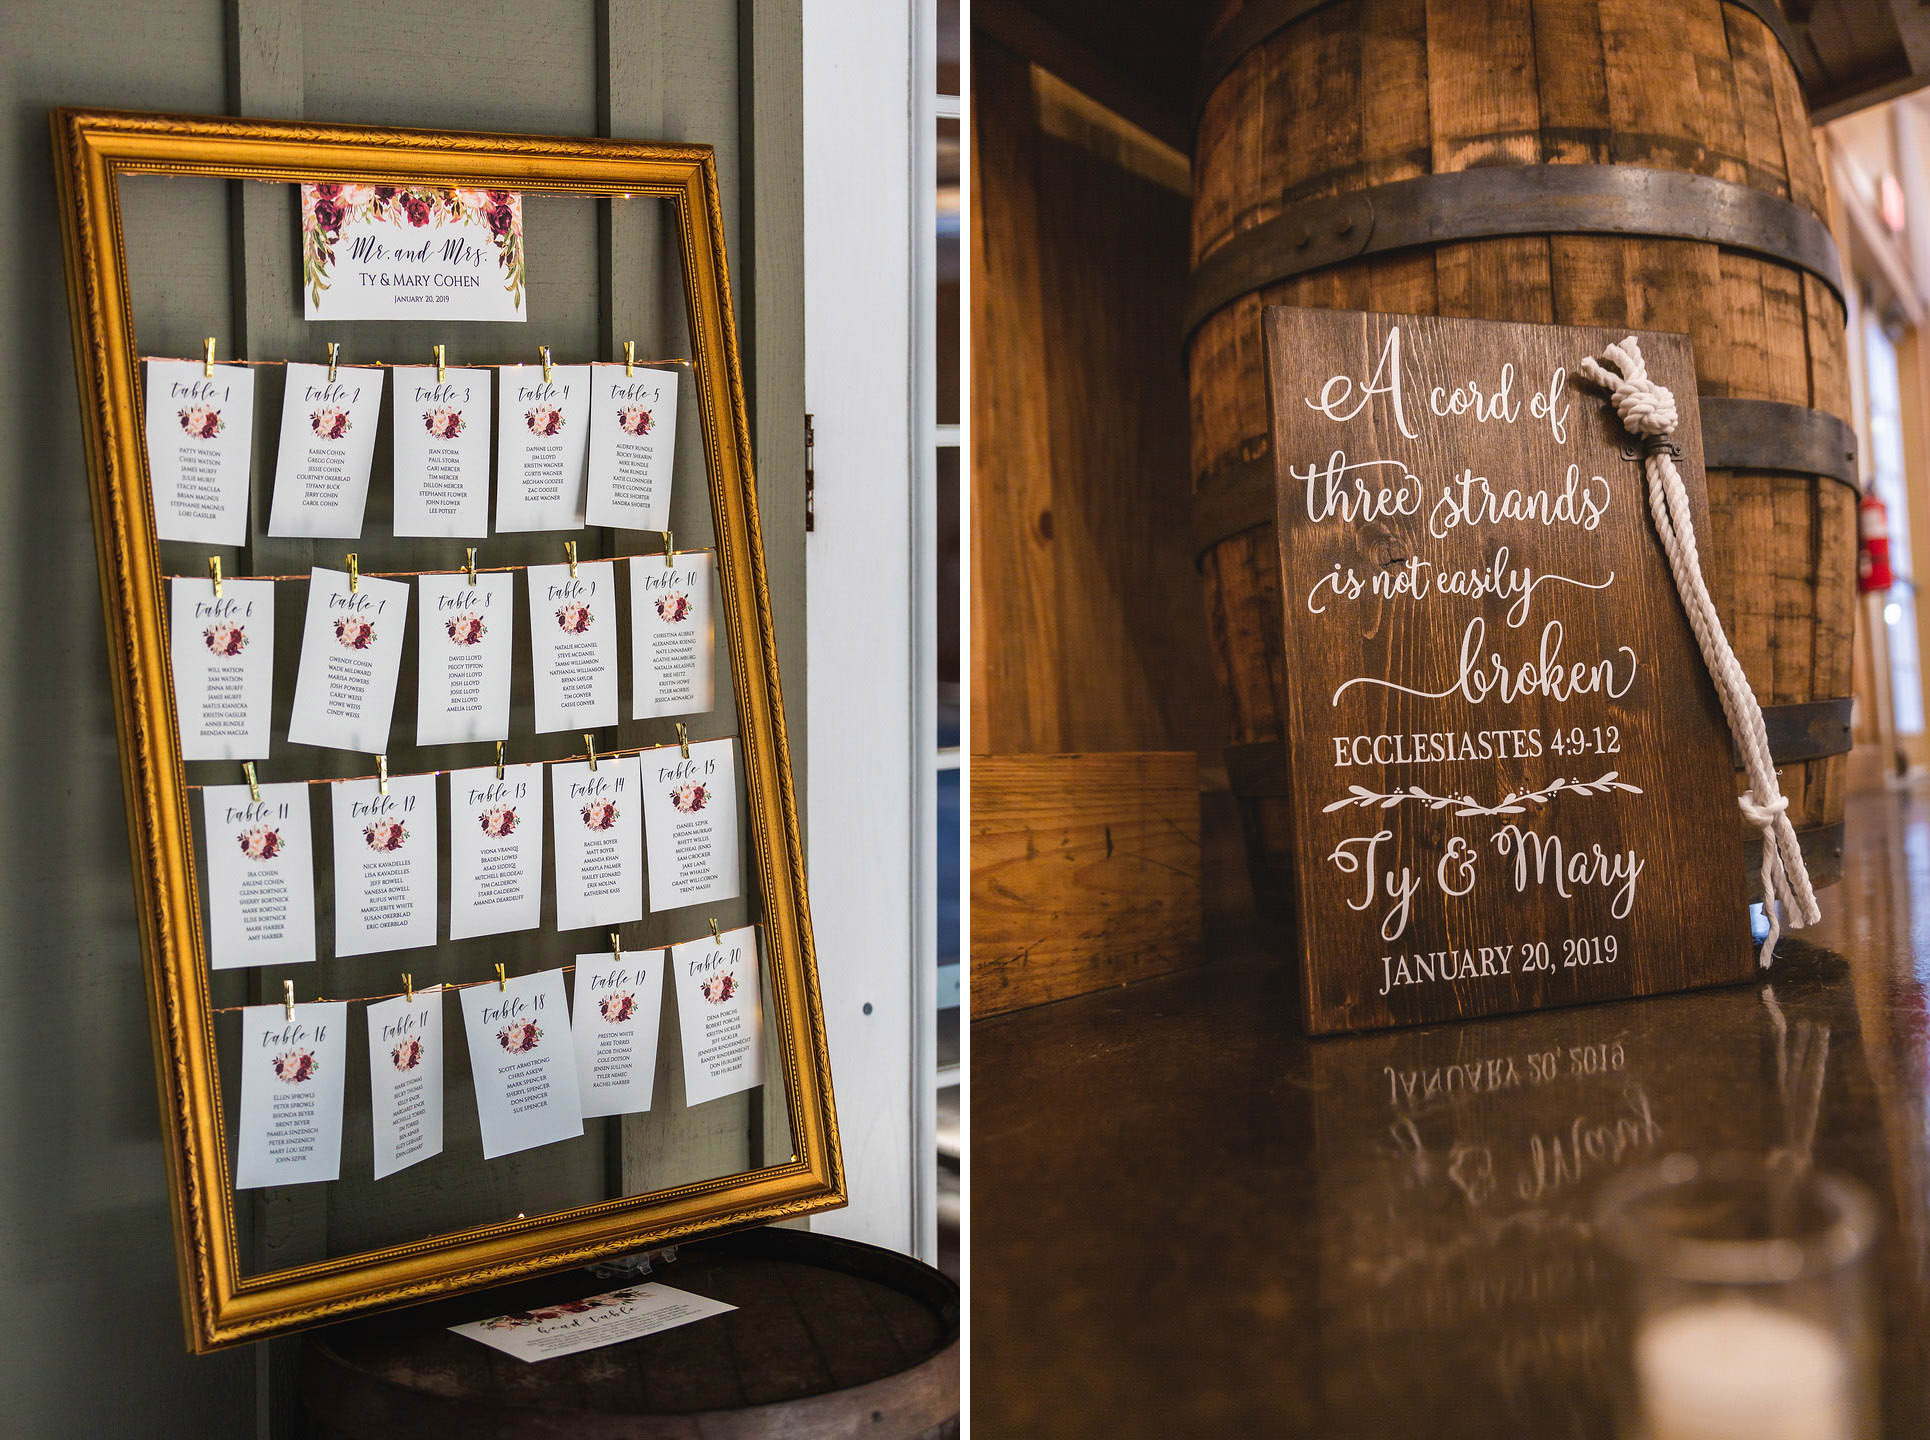 Mr. and Mrs.
Ty & Mary Cohen
January 20, 2019
table 1
Patty Watson
Chris Watson
James Murff
Julie Murff
Stacey Maclea
Brian Magnus
Stephanie Magnus
Lori Gassler
table 2
Karen Cohen
Gregg Cohen
Jessie Cohen
Courtney Okerblad
Tiffany Buck
Jerry Cohen
Carol Cohen
table 3
Jean Storm
Paul Storm
Cari Mercer
Tim Mercer
Dillon Mercer
Stephanie Flower
John Flower
Lee Poteet
table 4
Daphne Lloyd
Jim Lloyd
Kristin Wagner
Curtis Wagner
Meghan Goozee
Zac Goozee
Blake Wagner
table 5
Audrey Rundle
Rocky Shearin
Mike Rundle
Pam Rundle
Katie Cloninger
Steve Cloninger
Bruce Shorter
Sandra Shorter
table 6
Will Watson
Sam Watson
Jenna Murff
Jamie Murff
Matus Kianicka
Kristin Gassler
Annie Rundle
Brendan Maclea
table 7
Gwendy Cohen
Wade Millward
Marisa Powers
Josh Powers
Carly Weiss
Howe Weiss
Cindy Weiss
table 8
David Lloyd
Peggy Tipton
Jonah Lloyd
Josh Lloyd
Josie Lloyd
Ben Lloyd
Amelia Lloyd
table 9
Natalie McDaniel
Steve McDaniel
Tammi Williamson
Nathanial Williamson
Bryan Saylor
Katie Saylor
Tim Gonyer
Cassie Gonyer
table 10
Christina Aubrey
Alexandra Koenig
Nate Linnabary
Agathe Malmburg
Natalia Milashus
Brie Heitz
Kristin Howe
Tyler Morris
Jessica Monarch
table 11
Ira Cohen
Arlene Cohen
Glenn Bortnick
Sherry Bortnick
Mark Bortnick
Elise Bortnick
Mark Harber
Amy Harber
table 12
Nick Kavadelles
Lisa Kavadelles
Jeff Rowell
Vanessa Rowell
Rufus White
Marguerite White
Susan Okerblad
Eric Okerblad
table 13
Viona Vraniqi
Braden Lowes
Asad Siddiqi
Mitchell Bilodeau
Tim Calderon
Starr Calderon
Amanda Deardeuff
table 14
Rachel Boyer
Matt Boyer
Amanda Khan
Makayla Palmer
Hailey Leonard
Erik Molina
Katherine Kass
table 15
Daniel Szpik
Jordan Murray
Rhett Willis
Micheal Jenks
Sam Crocker
Jake Lane
Tim Whalen
Grant Willcoxon
Trent Masih
table 16
Ellen Sprowls
Peter Sprowls
Rhonda Beyer
Brent Beyer
Pamela Sinzenich
Peter Sinzenich
Mary Lou Szpik
John Szpik
table 17
Mark Thomas
Becky Thomas
Kelly Knox
Margaret Knox
Michelle Torres
Jim Torres
Ben Abner
Suzy Gebhart
John Gebhart
table 18
Scott Armstrong
Chris Askew
Mark Spencer
Sheryl Spencer
Don Spencer
Sue Spencer
table 19
Preston White
Mike Torres
Jacob Thomas
Cole Dotson
Jensen Sullivan
Tyler Nemec
Rachel Harber
table 20
Dena Porche
Robert Porche
Kristin Sickler
Jeff Sickler
Jennifer Rinderknecht
Randy Rinderknecht
Don Hurlbert
Teri Hurlbert
head table
A cord of
three strands
is not easily
broken
ECCLESIASTES 4:9-12
Ty & Mary
JANUARY 20, 2019